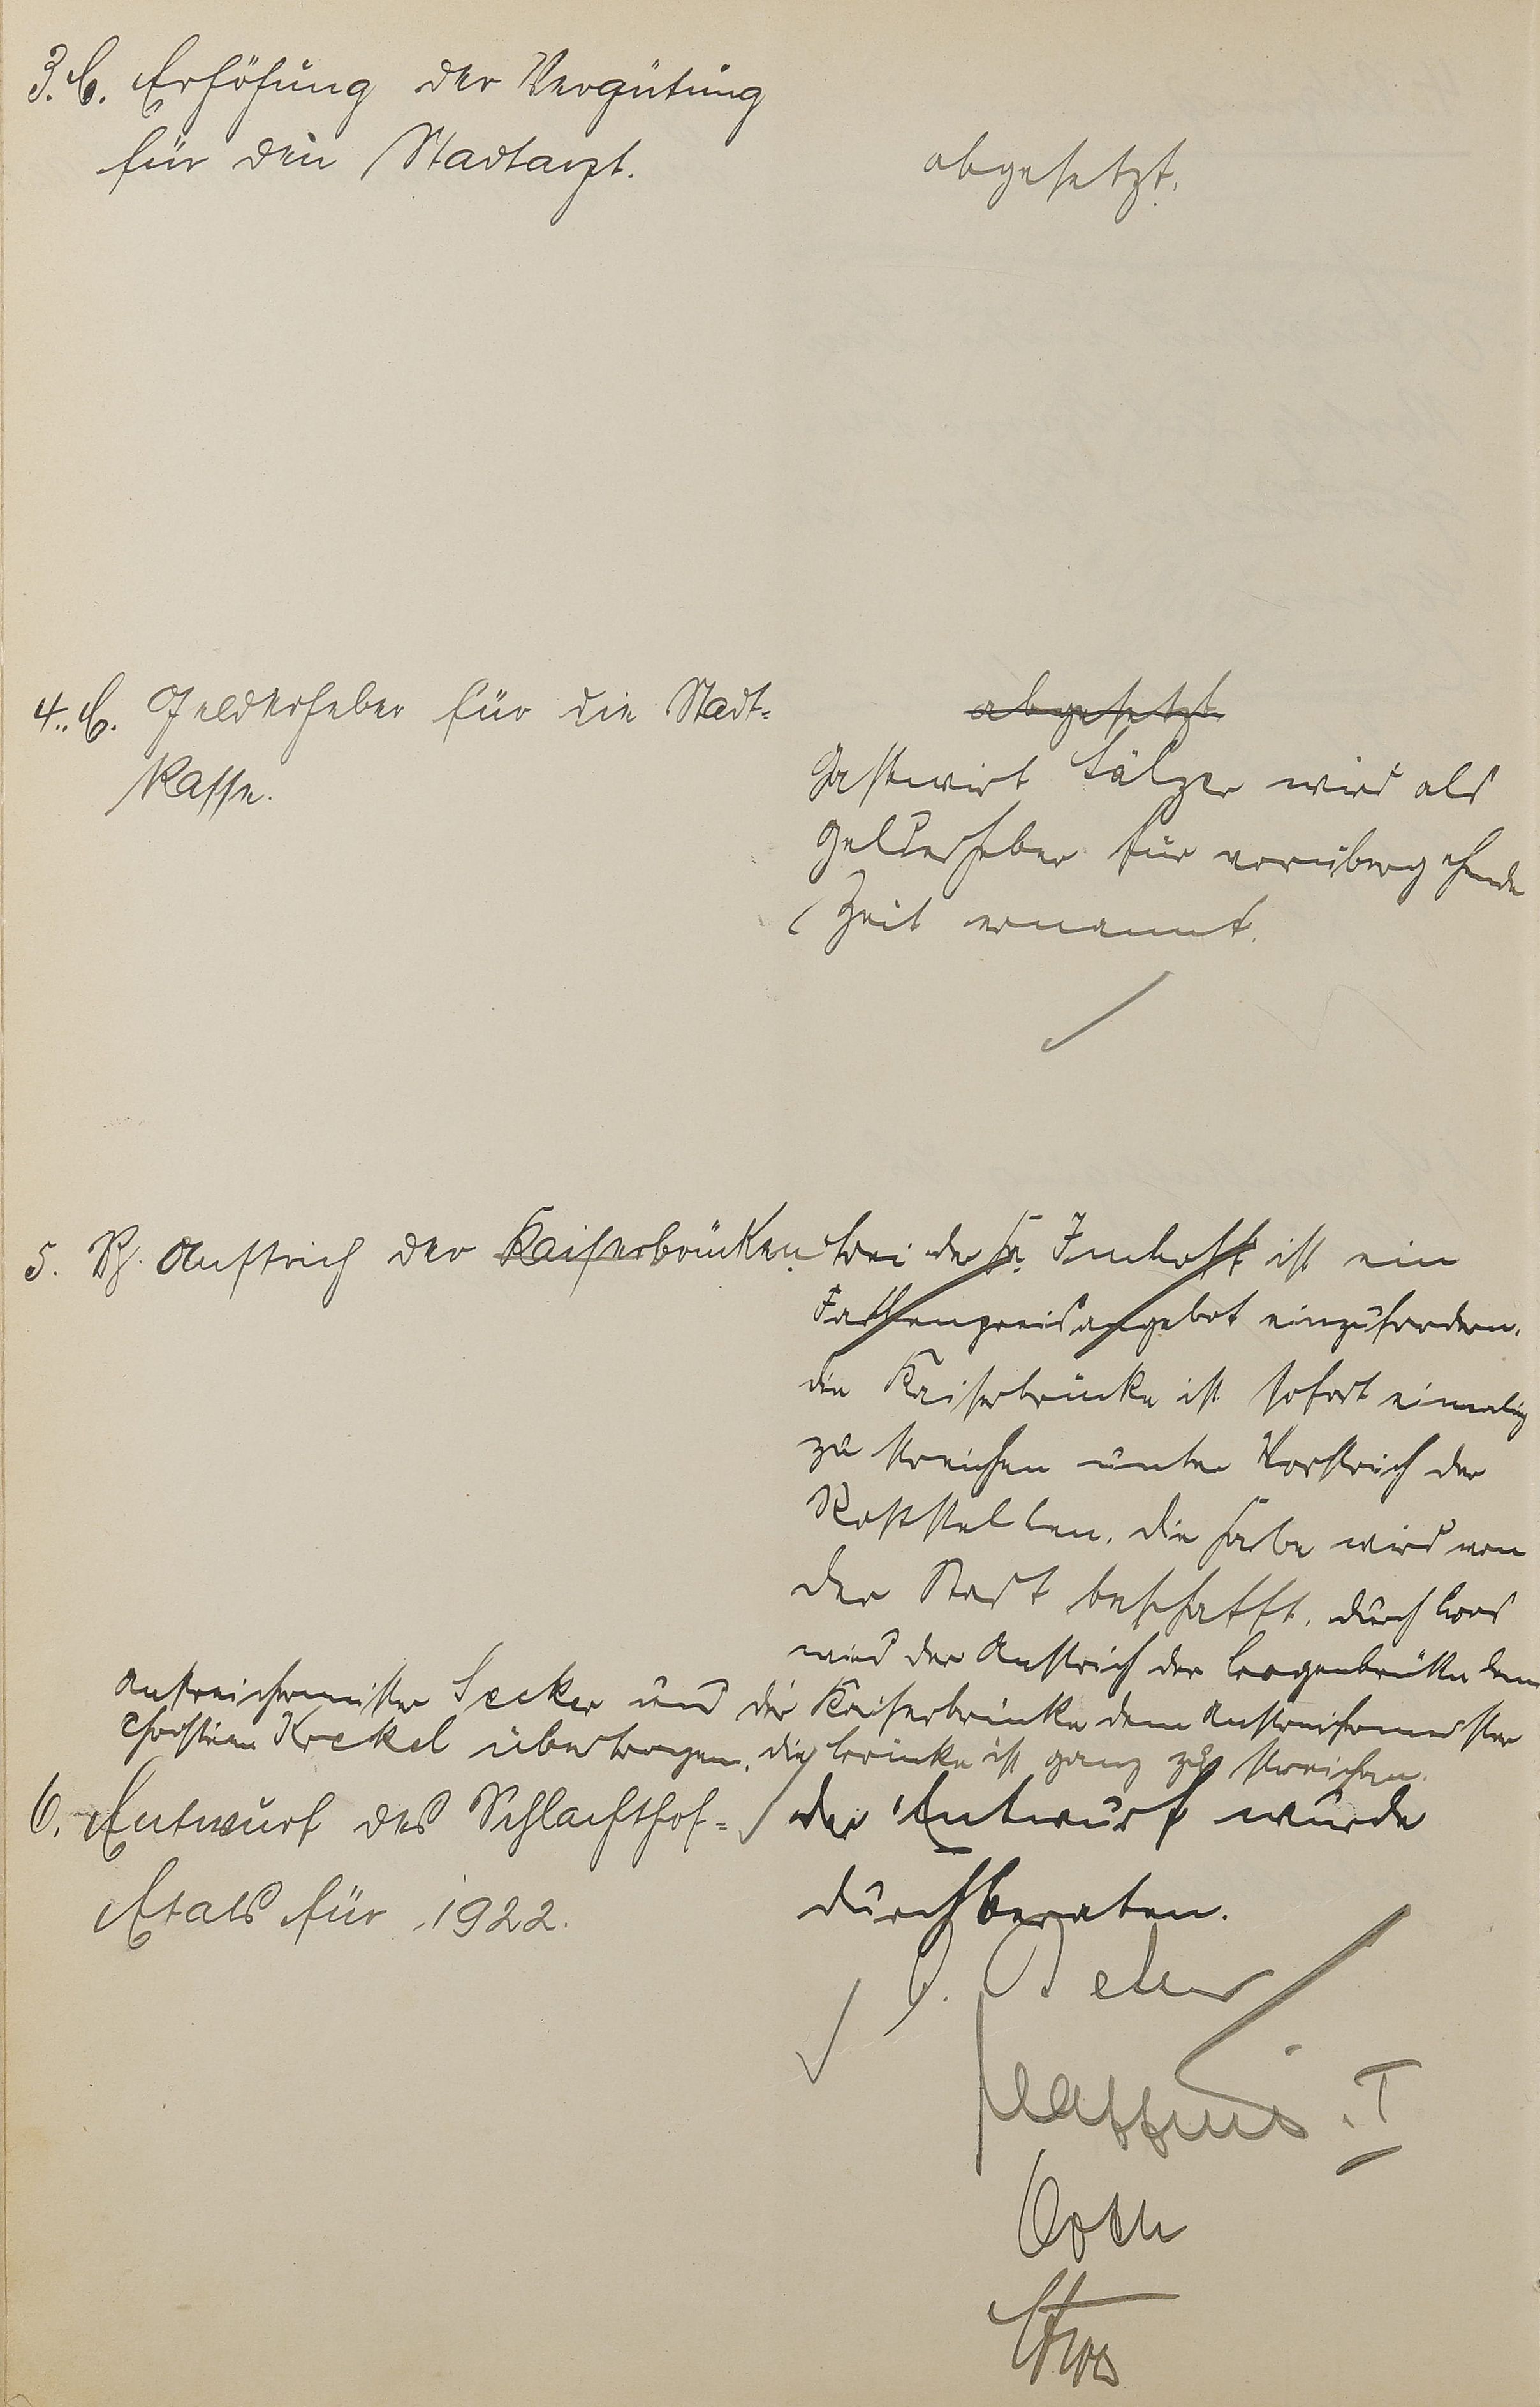 3. C. Erhöhung der Vergütung
für den Stadtarzt.
abgesetzt.
4. C. Gelderheber für die Stadt-
kasse.
abgesetzt
Gastwirt Sälzer wird als
Gelderheber für vorübergehende
Zeit ernannt.
5. B. Anstrich der Kaiserbrücken.
Bei der Fa. Imhoff ist ein
Farbenpreisangebot einzufordern.
die Kaiserbrücke ist sofort einmalig
zu streichen unter Vorstrich der
Roststellen. die Farbe wird von
der Stadt beschafft. durch Los
wird der Anstrich der Bogenbrücke dem
Anstreichermeister Secker und die Kaiserbrücke dem Anstreichermeister
Christian Krekel übertragen. die Brücke ist ganz zu streichen.
6. Entwurf des Schlachthof-
Etats für 1922.
der Entwurf wurde
durchberaten.